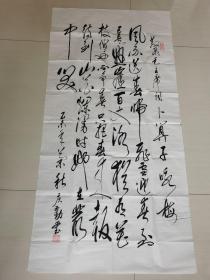 毛主席词卜算子咏梅
风雨送春归飞雪迎春到
已是悬崖百丈冰犹有花
枝俏俏也不争春只把春来报
待到山花烂漫时她在丛
中笑